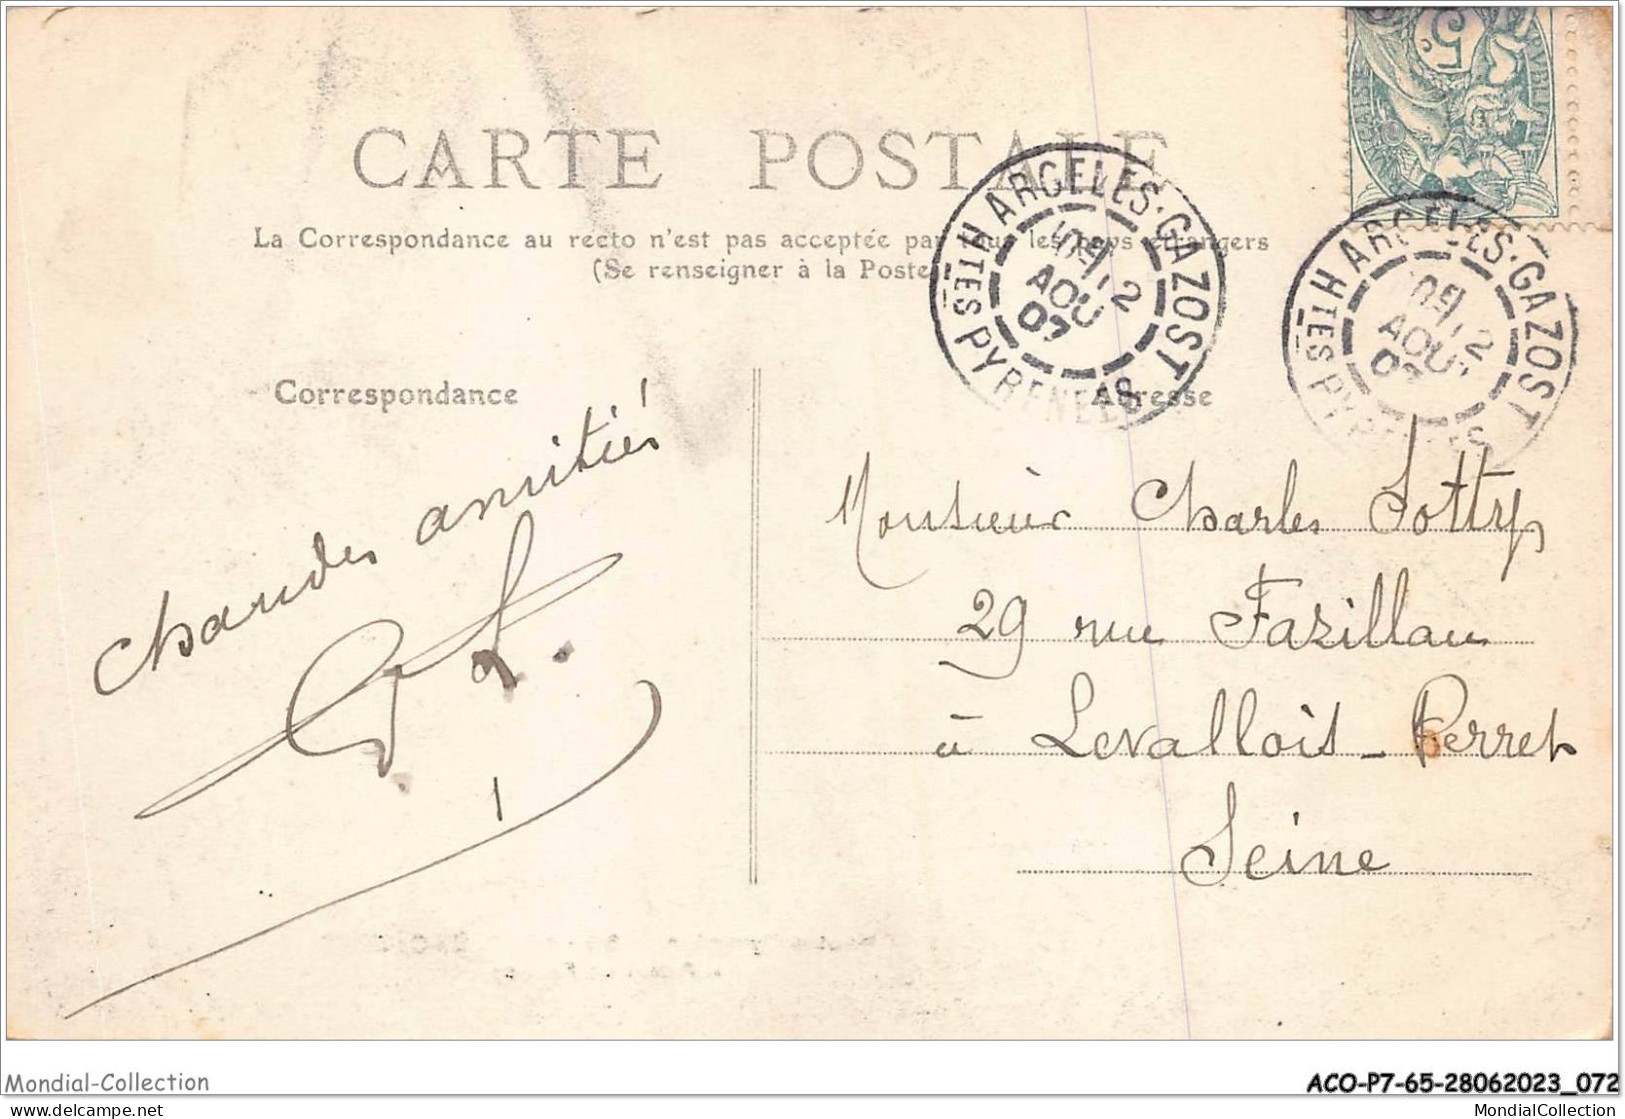 CARTE POSTALE
La Correspondance au recto n'est pas acceptée par tous les pays étrangers
(Se renseigner à la Poste)
ARGELES-GAZOST
12
AOU
07
HTES PYRENEES
ARGELES-GAZOST
12
AOU
HTES PYRENEES
5
Correspondance
Adresse
Chaudes amitiés
Monsieur Charles
29 rue Fazillau
à Levallois-Perret
Seine
Mondial-Collection
ACO-P7-65-28062023_072
www.delcampe.net
MondialCollection